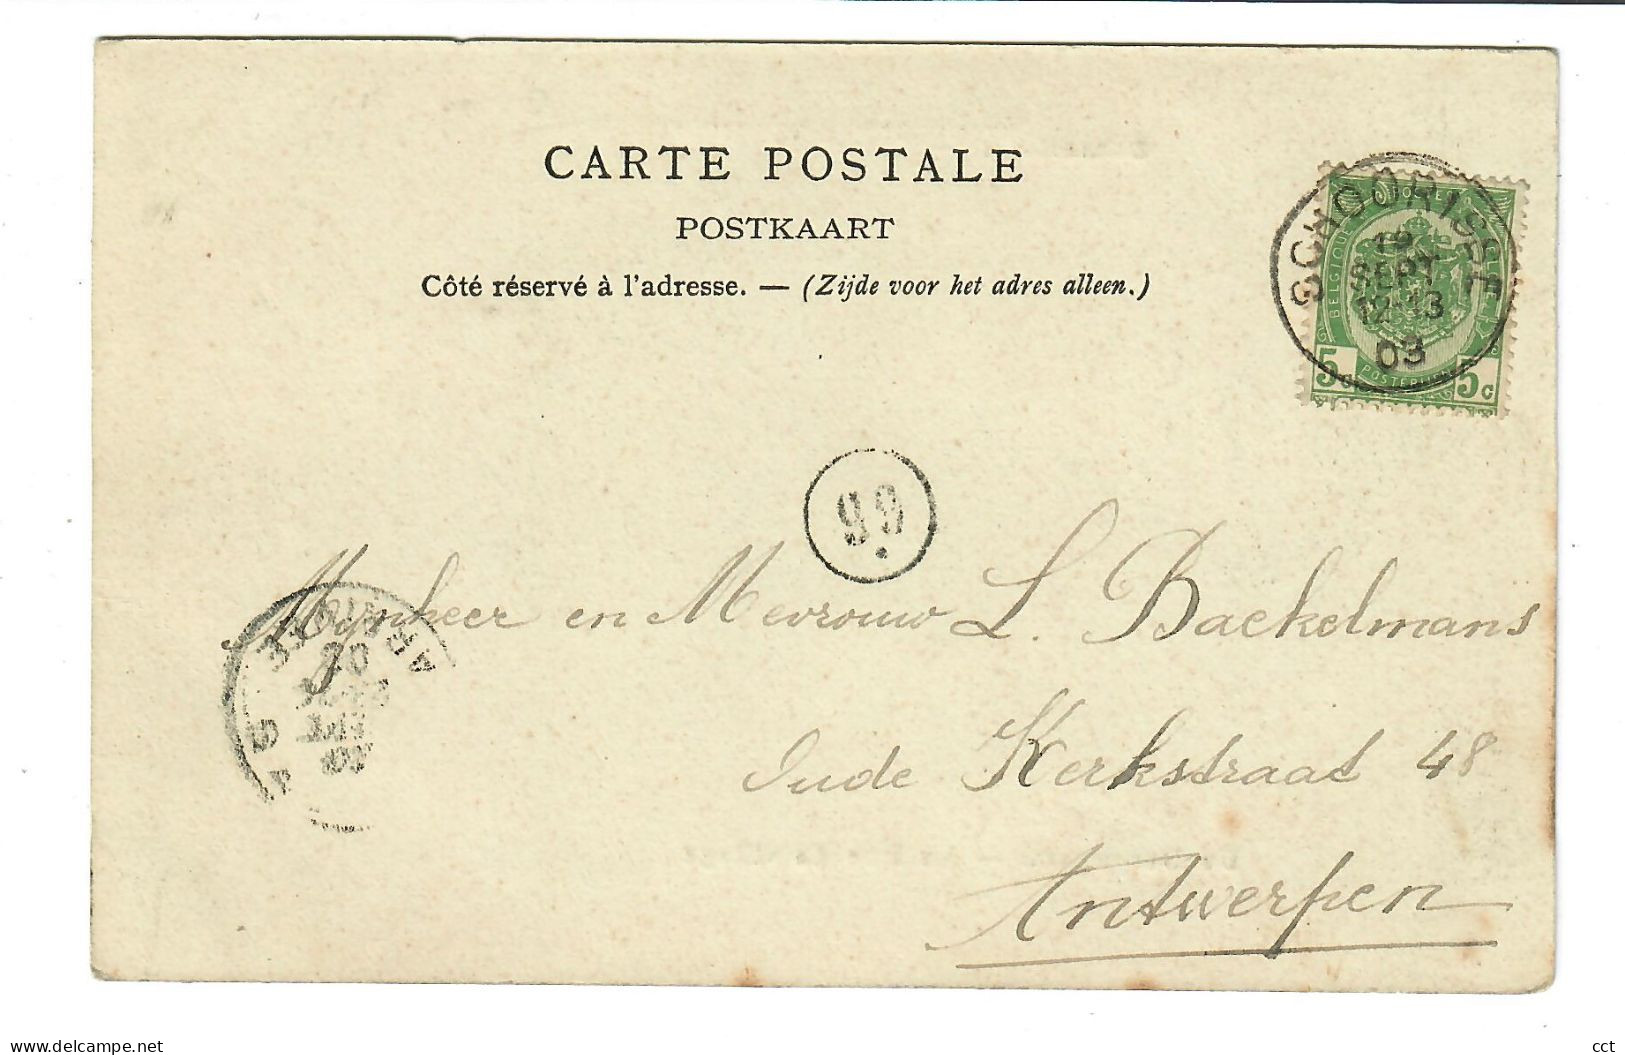 CARTE POSTALE
POSTKAART
Côté réservé à l'adresse. — (Zijde voor het adres alleen.)
SCHOORISSE
19
SEPT
12-13
03
BELGIQUE
5c POSTERIJEN 5c
99
Mynheer en Mevrouw L. Backelmans
Oude Kerkstraat 48
Antwerpen
www.delcampe.net
cct